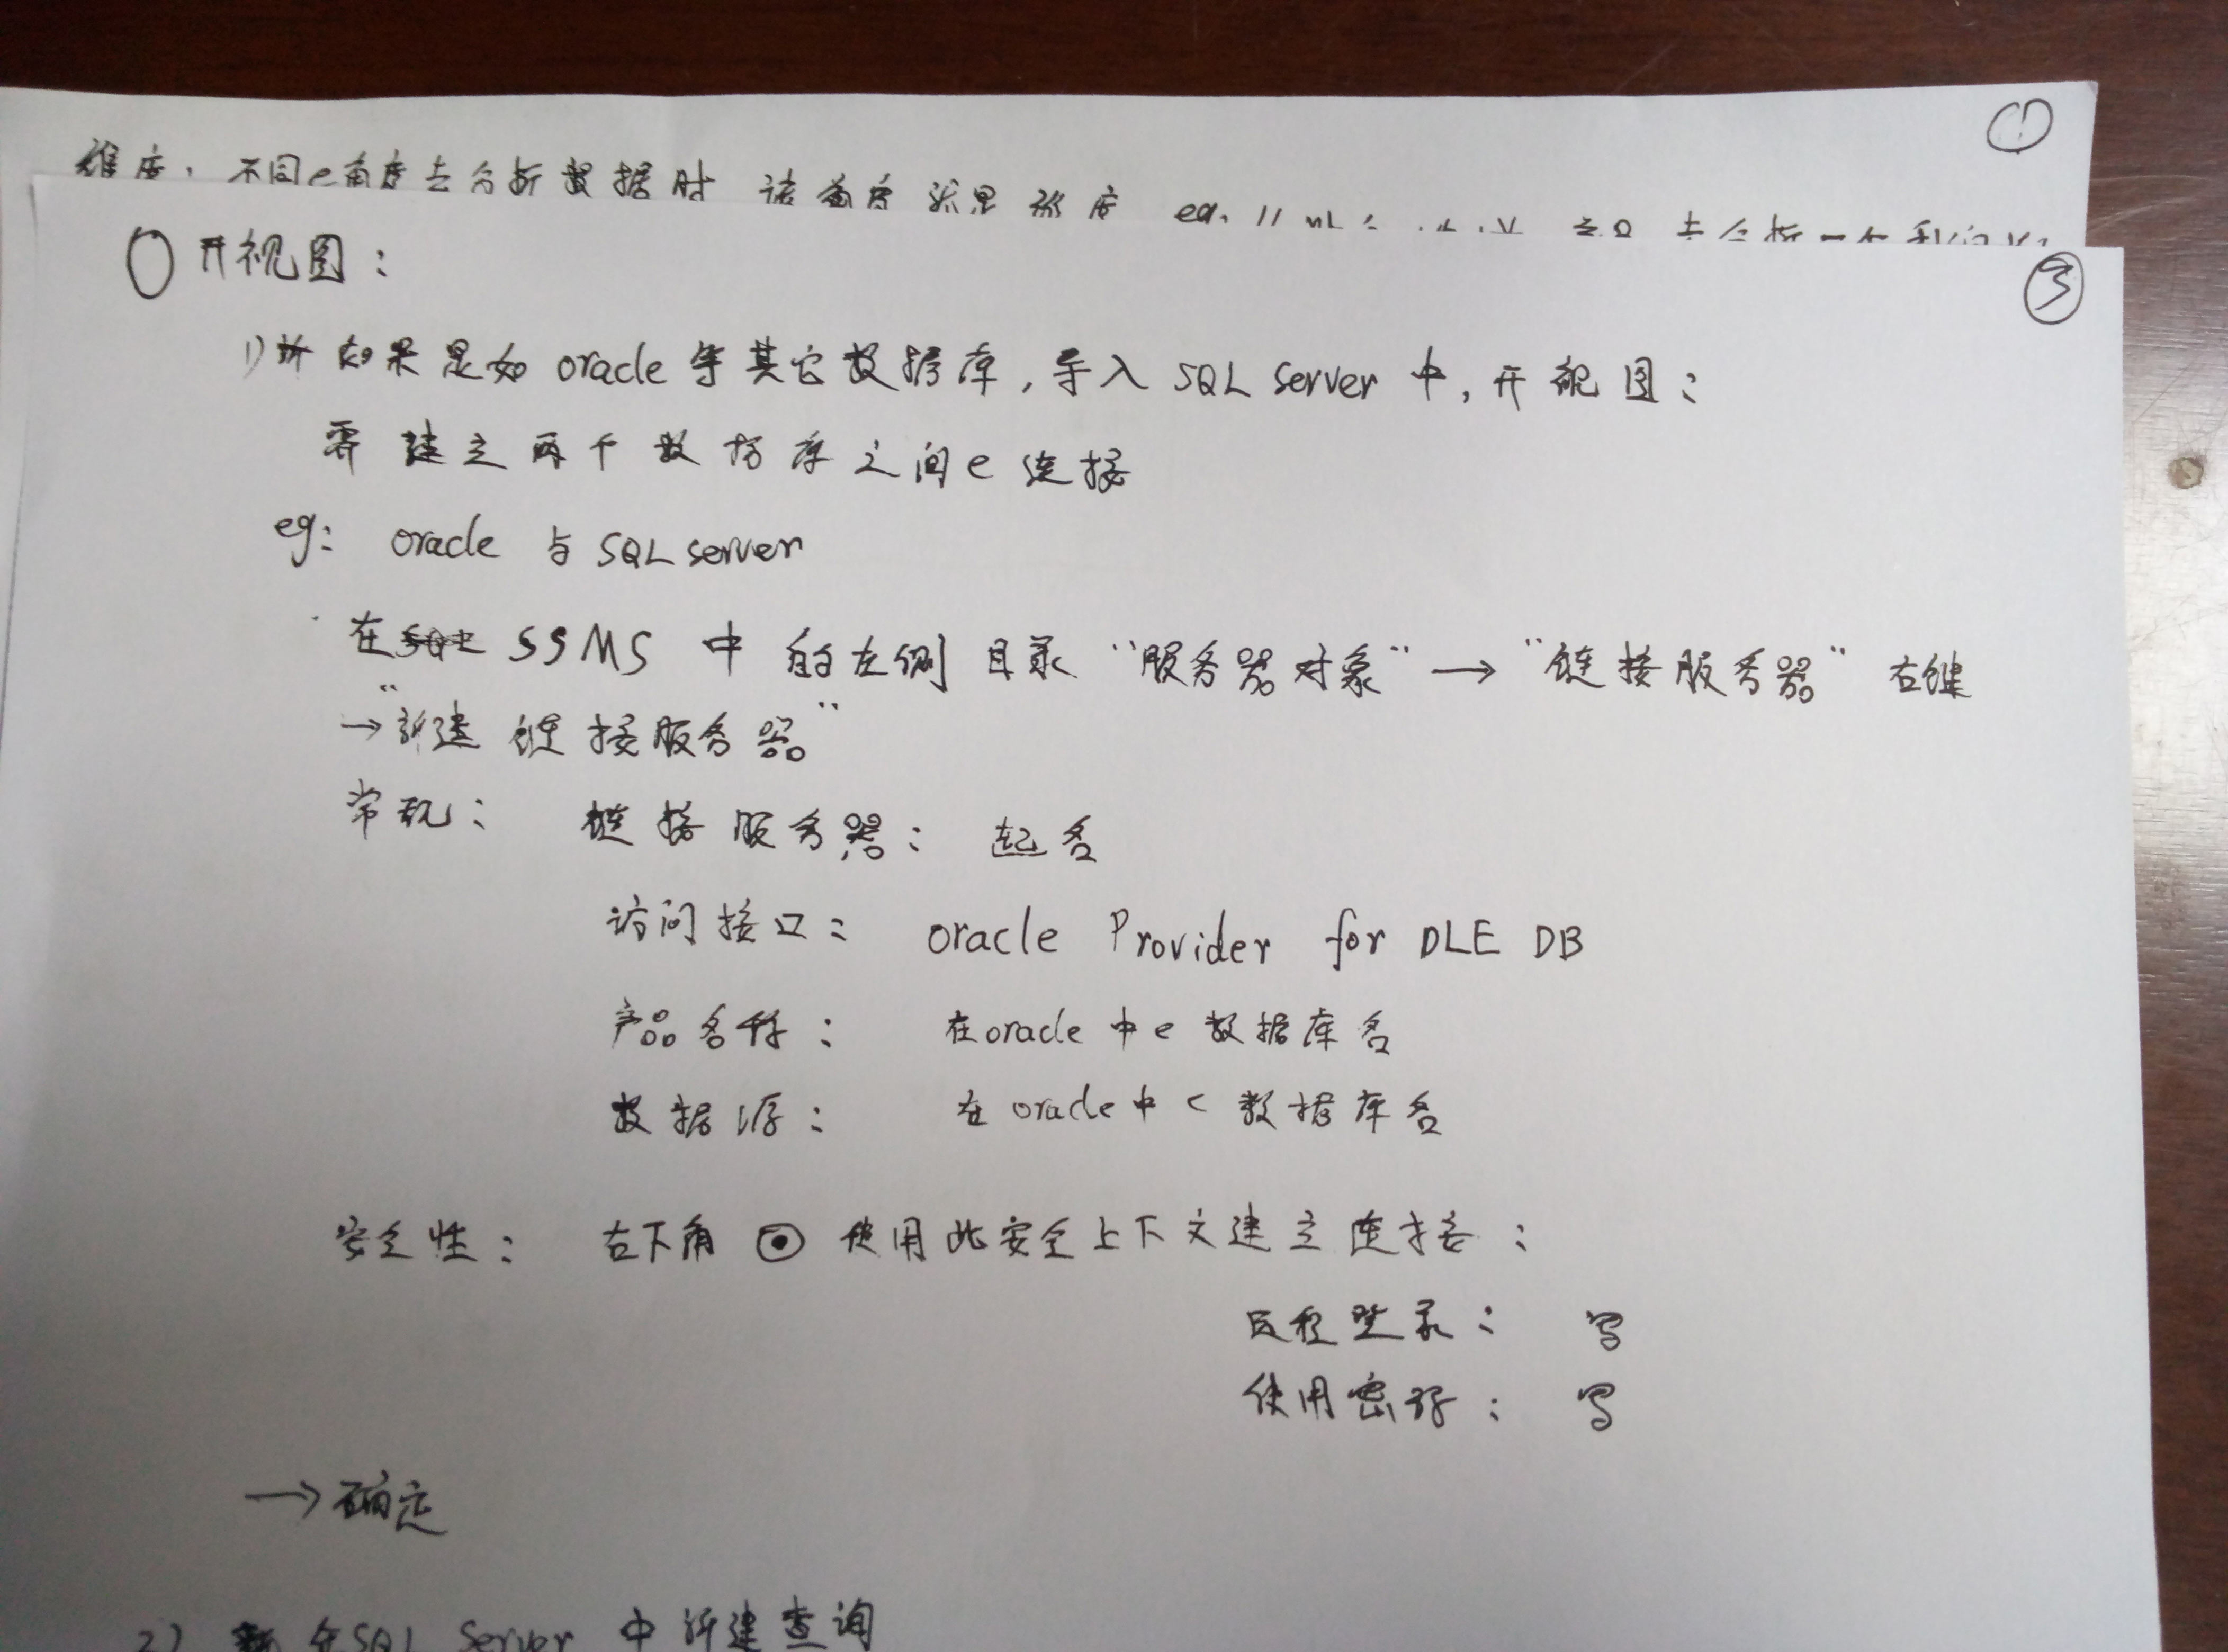 ①
维度：不同e角度去分析数据时 该角度就是维度 eg.
③
○ 开视图：
1) 如果是如oracle等其它数据库，导入SQL Server中，开视图：
需建立两个数据库之间e连接
eg： oracle 与 SQL server
在 SSMS 中的左侧目录 “服务器对象” → “链接服务器” 右键
→ “新建链接服务器”
常规： 链接服务器： 起名
访问接口： oracle Provider for OLE DB
产品名称： 在oracle中e数据库名
数据源： 在oracle中e数据库名
安全性： 右下角 ⊙ 使用此安全上下文建立连接：
远程登录： 写
使用密码： 写
→ 确定
2) 在SQL Server 中新建查询